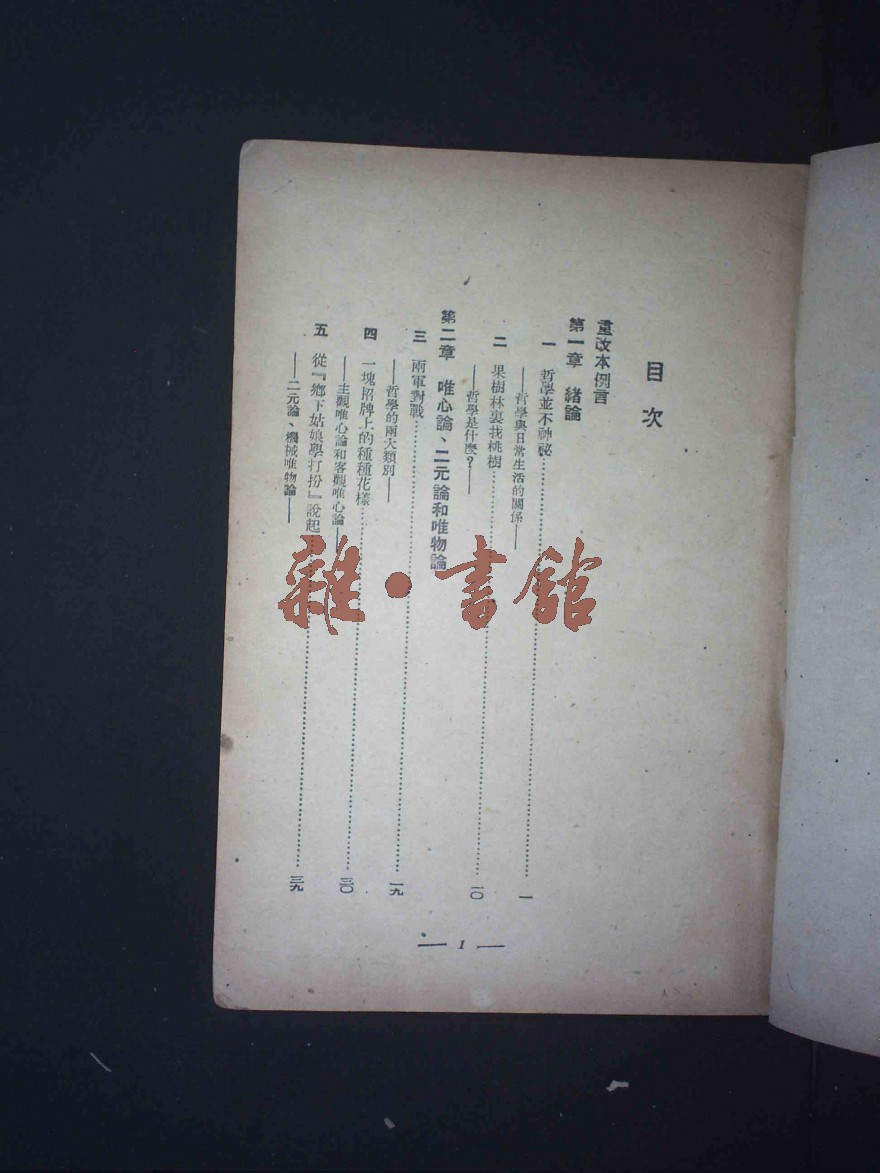 目次
重改本例言
第一章　緒論
一　哲學並不神祕……一
——哲學與日常生活的關係——
二　果樹林裏找桃樹……一〇
——哲學是什麼？——
第二章　唯心論、二元論和唯物論
三　兩軍對戰……一九
——哲學的兩大類別——
四　一塊招牌上的種種花樣……三〇
——主觀唯心論和客觀唯心論——
五　從『鄉下姑娘學打扮』說起……三九
——二元論、機械唯物論——
— 1 —
雜·書館